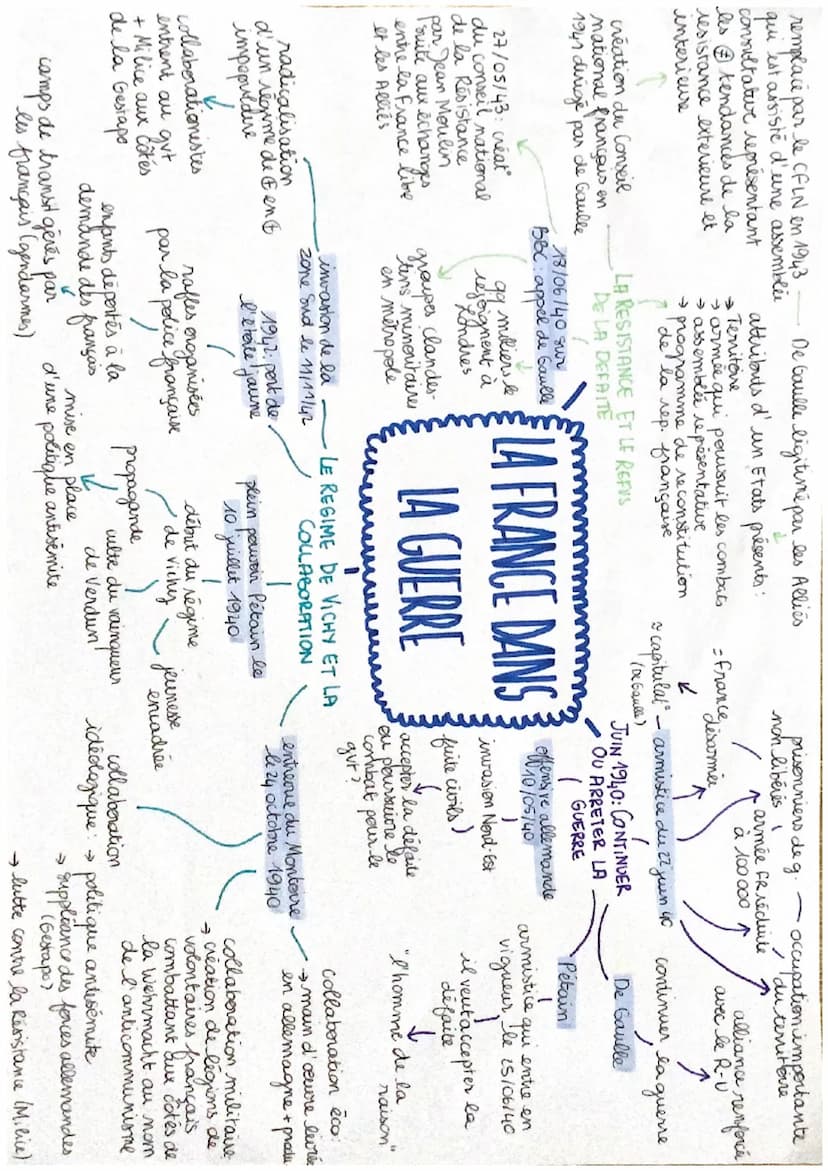 LA FRANCE DANS
LA GUERRE
JUIN 1940: CONTINUER
OU ARRETER LA
GUERRE
offensive allemande
10/05/40
invasion Nord-Est
fuite civils
accepter la défaite
ou poursuivre le
combat pour le
gvt?
Pétain
armistice qui entre en
vigueur le 25/06/40
il veut accepter la
défaite
"l'homme de la
raison"
De Gaulle
continuer la guerre
alliance renforcée
avec le R-U
armistice du 22 juin 40
≠ capitulat°
(De Gaulle)
= France
désarmée
armée FR réduite
à 100 000
prisonniers de g.
non libérés
occupation importante
du territoire
LA RESISTANCE ET LE REFUS
DE LA DEFAITE
18/06/40 sur
BBC: appel de Gaulle
qq milliers le
rejoignent à
Londres
groupes clandes-
tins minoritaires
en métropole
27/05/43: créat°
du conseil national
de la Résistance
par Jean Moulin
suite aux échanges
entre la France libre
et les Alliés
création du Conseil
national français en
1941 dirigé par de Gaulle
remplacé par le CFLN en 1943
qui est assisté d'une assemblée
consultative représentant
les ≠ tendances de la
résistance extérieure et
intérieure
De Gaulle légitimé par les Alliés
attributs d'un Etats présents:
→ Territoire
→ armée qui poursuit les combats
→ assemblée représentative
→ programme de reconstitution
de la rep. française
LE REGIME DE VICHY ET LA
COLLABORATION
plein pouvoir Pétain le
10 juillet 1940
début du régime
de Vichy
jeunesse
encadrée
propagande
culte du vainqueur
de Verdun
mise en place
d'une politique antisémite
1942: port de
l'étoile jaune
rafles organisées
par la police française
enfants déportés à la
demande des français
camps de transit gérés par
les français (gendarmes)
invasion de la
zone Sud le 11/11/42
radicalisation
d'un régime de + en +
impopulaire
collaborationnistes
entrent au gvt
+ Milice aux côtés
de la Gestapo
entrevue du Montoire
le 24 octobre 1940
collaboration éco:
→ main d'œuvre livrée
en allemagne + produ
collaboration militaire
→ création de légions de
volontaires français
combattant aux côtés de
la Wehrmacht au nom
de l'anticommunisme
collaboration
idéologique: → politique antisémite
→ suppléance des forces allemandes
(Gestapo)
→ lutte contre la Résistance (Milice)